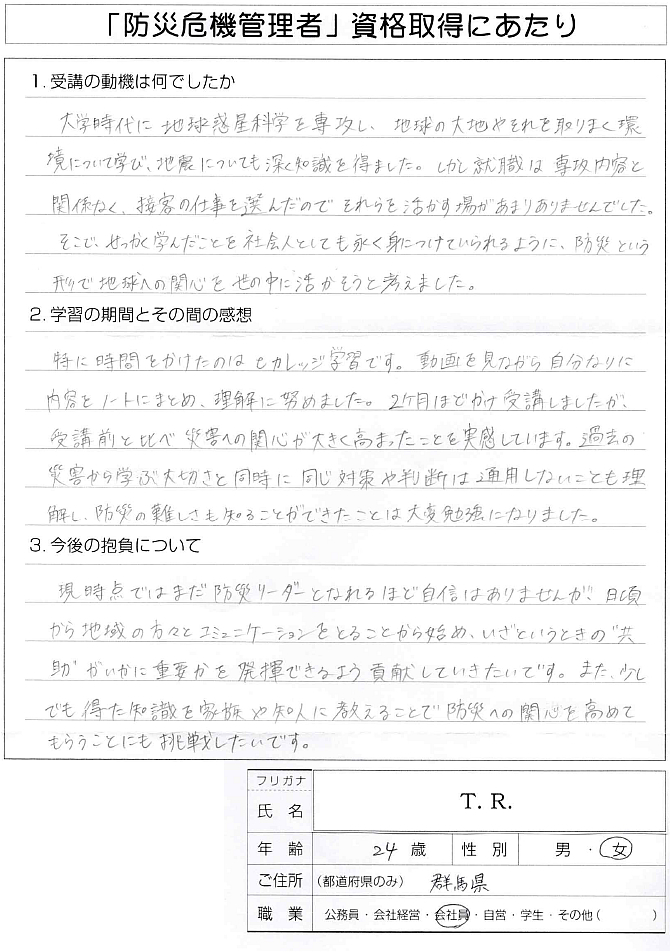 「防災危機管理者」資格取得にあたり
1. 受講の動機は何でしたか
大学時代に地球惑星科学を専攻し、地球の大地やそれを取りまく環
境について学び、地震についても深く知識を得ました。しかし就職は専攻内容と
関係なく、接客の仕事を選んだのでそれらを活かす場があまりありませんでした。
そこで、せっかく学んだことを社会人としても永く身につけていられるように、防災という
形で地球への関心を世の中に活かそうと考えました。
2. 学習の期間とその間の感想
特に時間をかけたのはeカレッジ学習です。動画を見ながら自分なりに
内容をノートにまとめ、理解に努めました。2ヶ月ほどかけ受講しましたが、
受講前と比べ災害への関心が大きく高まったことを実感しています。過去の
災害から学ぶ大切さと同時に同じ対策や判断は通用しないことも理
解し、防災の難しさも知ることができたことは大変勉強になりました。
3. 今後の抱負について
現時点ではまだ防災リーダーとなれるほど自信はありませんが、日頃
から地域の方々とコミュニケーションをとることから始め、いざというときの"共
助"がいかに重要かを発揮できるよう貢献していきたいです。また、少し
でも得た知識を家族や知人に教えることで防災への関心を高めて
もらうことにも挑戦したいです。
フリガナ
氏 名 T. R.
年 齢 24 歳 性 別 男 ・ 女
ご住所 (都道府県のみ) 群馬県
職 業 公務員・会社経営・会社員・自営・学生・その他( )